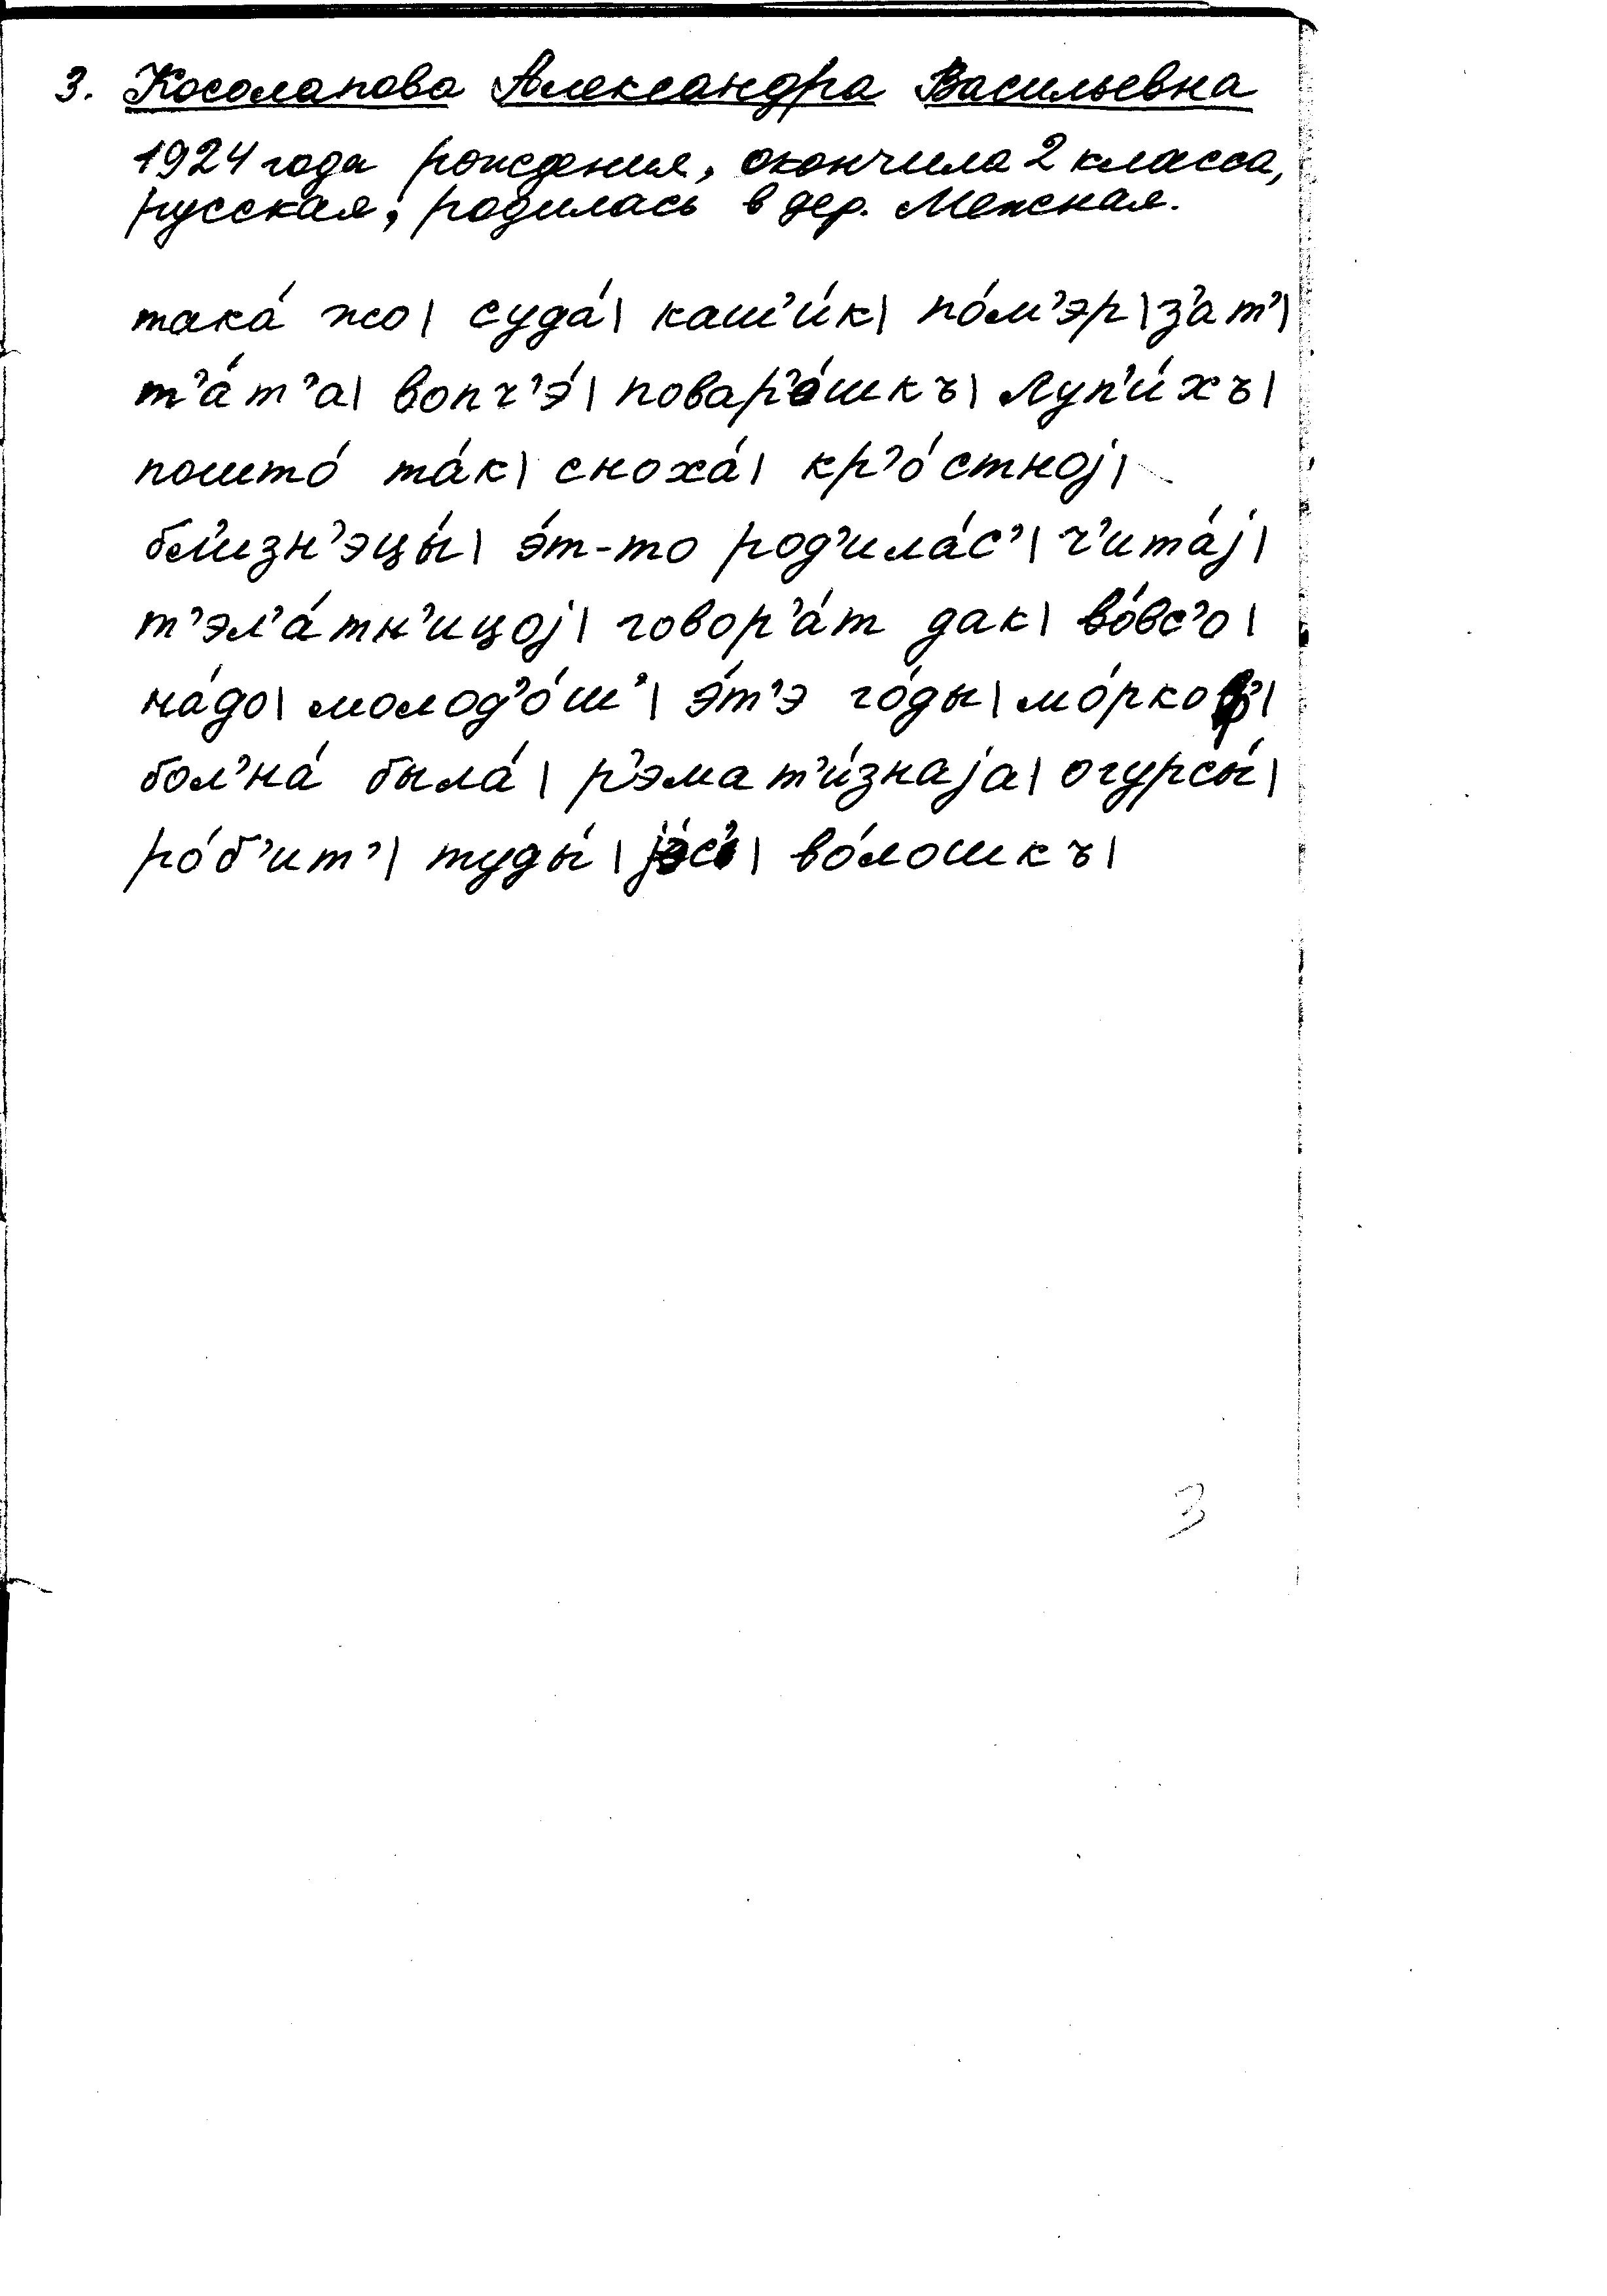 3. Косолапова Александра Васильевна
1924 года рождения, окончила 2 класса,
русская, родилась в дер. Межная.
така́ жо| суда́| каш'и́к| по́м'эр| з'ат'|
т'а́т'а| вопч'э́| повар'о́шкъ| Луп'и́хъ|
пошто́ та́к| сноха́| кр'о́стној|
бл'изн'эцы́| э́т-то род'ила́с'| ч'ита́ј|
т'эл'а́тн'ицој| говор'а́т дак| во́вс'о|
на́до| молод'о́ш'| э́т'э го́ды| мо́ркоф'|
бол'на́ была́| р'эмат'и́знаја| огурсы́|
ро́б'ит'| туды́| во́лошкъ|
3